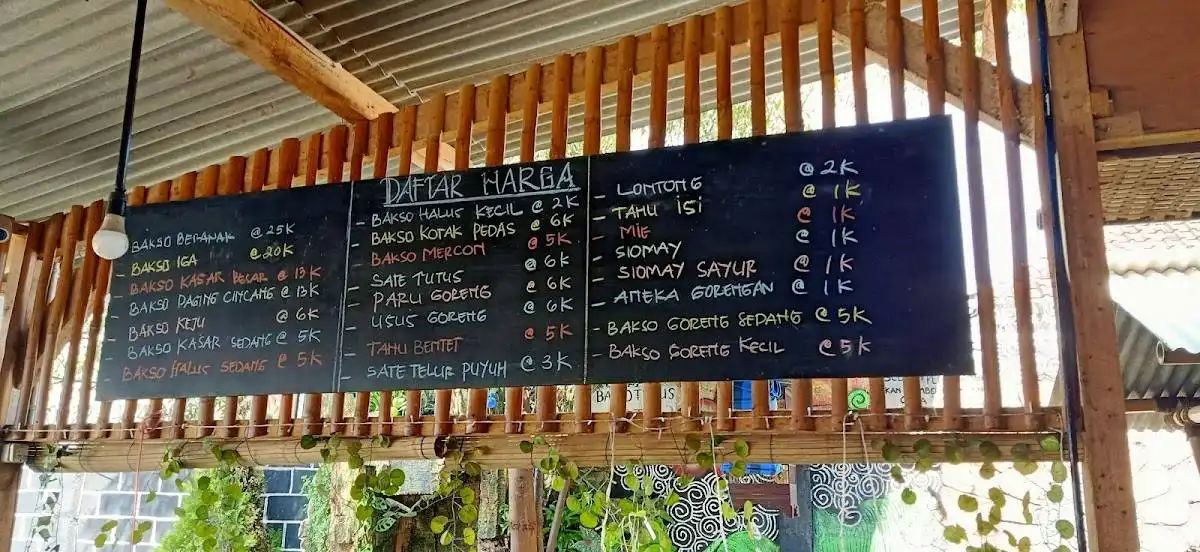 DAFTAR HARGA
- BAKSO BERANAK @ 25K
- BAKSO IGA @ 20K
- BAKSO KASAR BESAR @ 13K
- BAKSO DAGING CINCANG @ 13K
- BAKSO KEJU @ 6K
- BAKSO KASAR SEDANG @ 5K
- BAKSO HALUS SEDANG @ 5K
- BAKSO HALUS KECIL @ 2K
- BAKSO KOTAK PEDAS @ 6K
- BAKSO MERCON @ 5K
- SATE TUTUS @ 6K
- PARU GORENG @ 6K
- USUS GORENG @ 6K
- TAHU BENTET @ 5K
- SATE TELUR PUYUH @ 3K
- LONTONG @ 2K
- TAHU ISI @ 1K
- MIE @ 1K
- SIOMAY @ 1K
- SIOMAY SAYUR @ 1K
- ANEKA GORENGAN @ 1K
- BAKSO GORENG SEDANG @ 5K
- BAKSO GORENG KECIL @ 5K